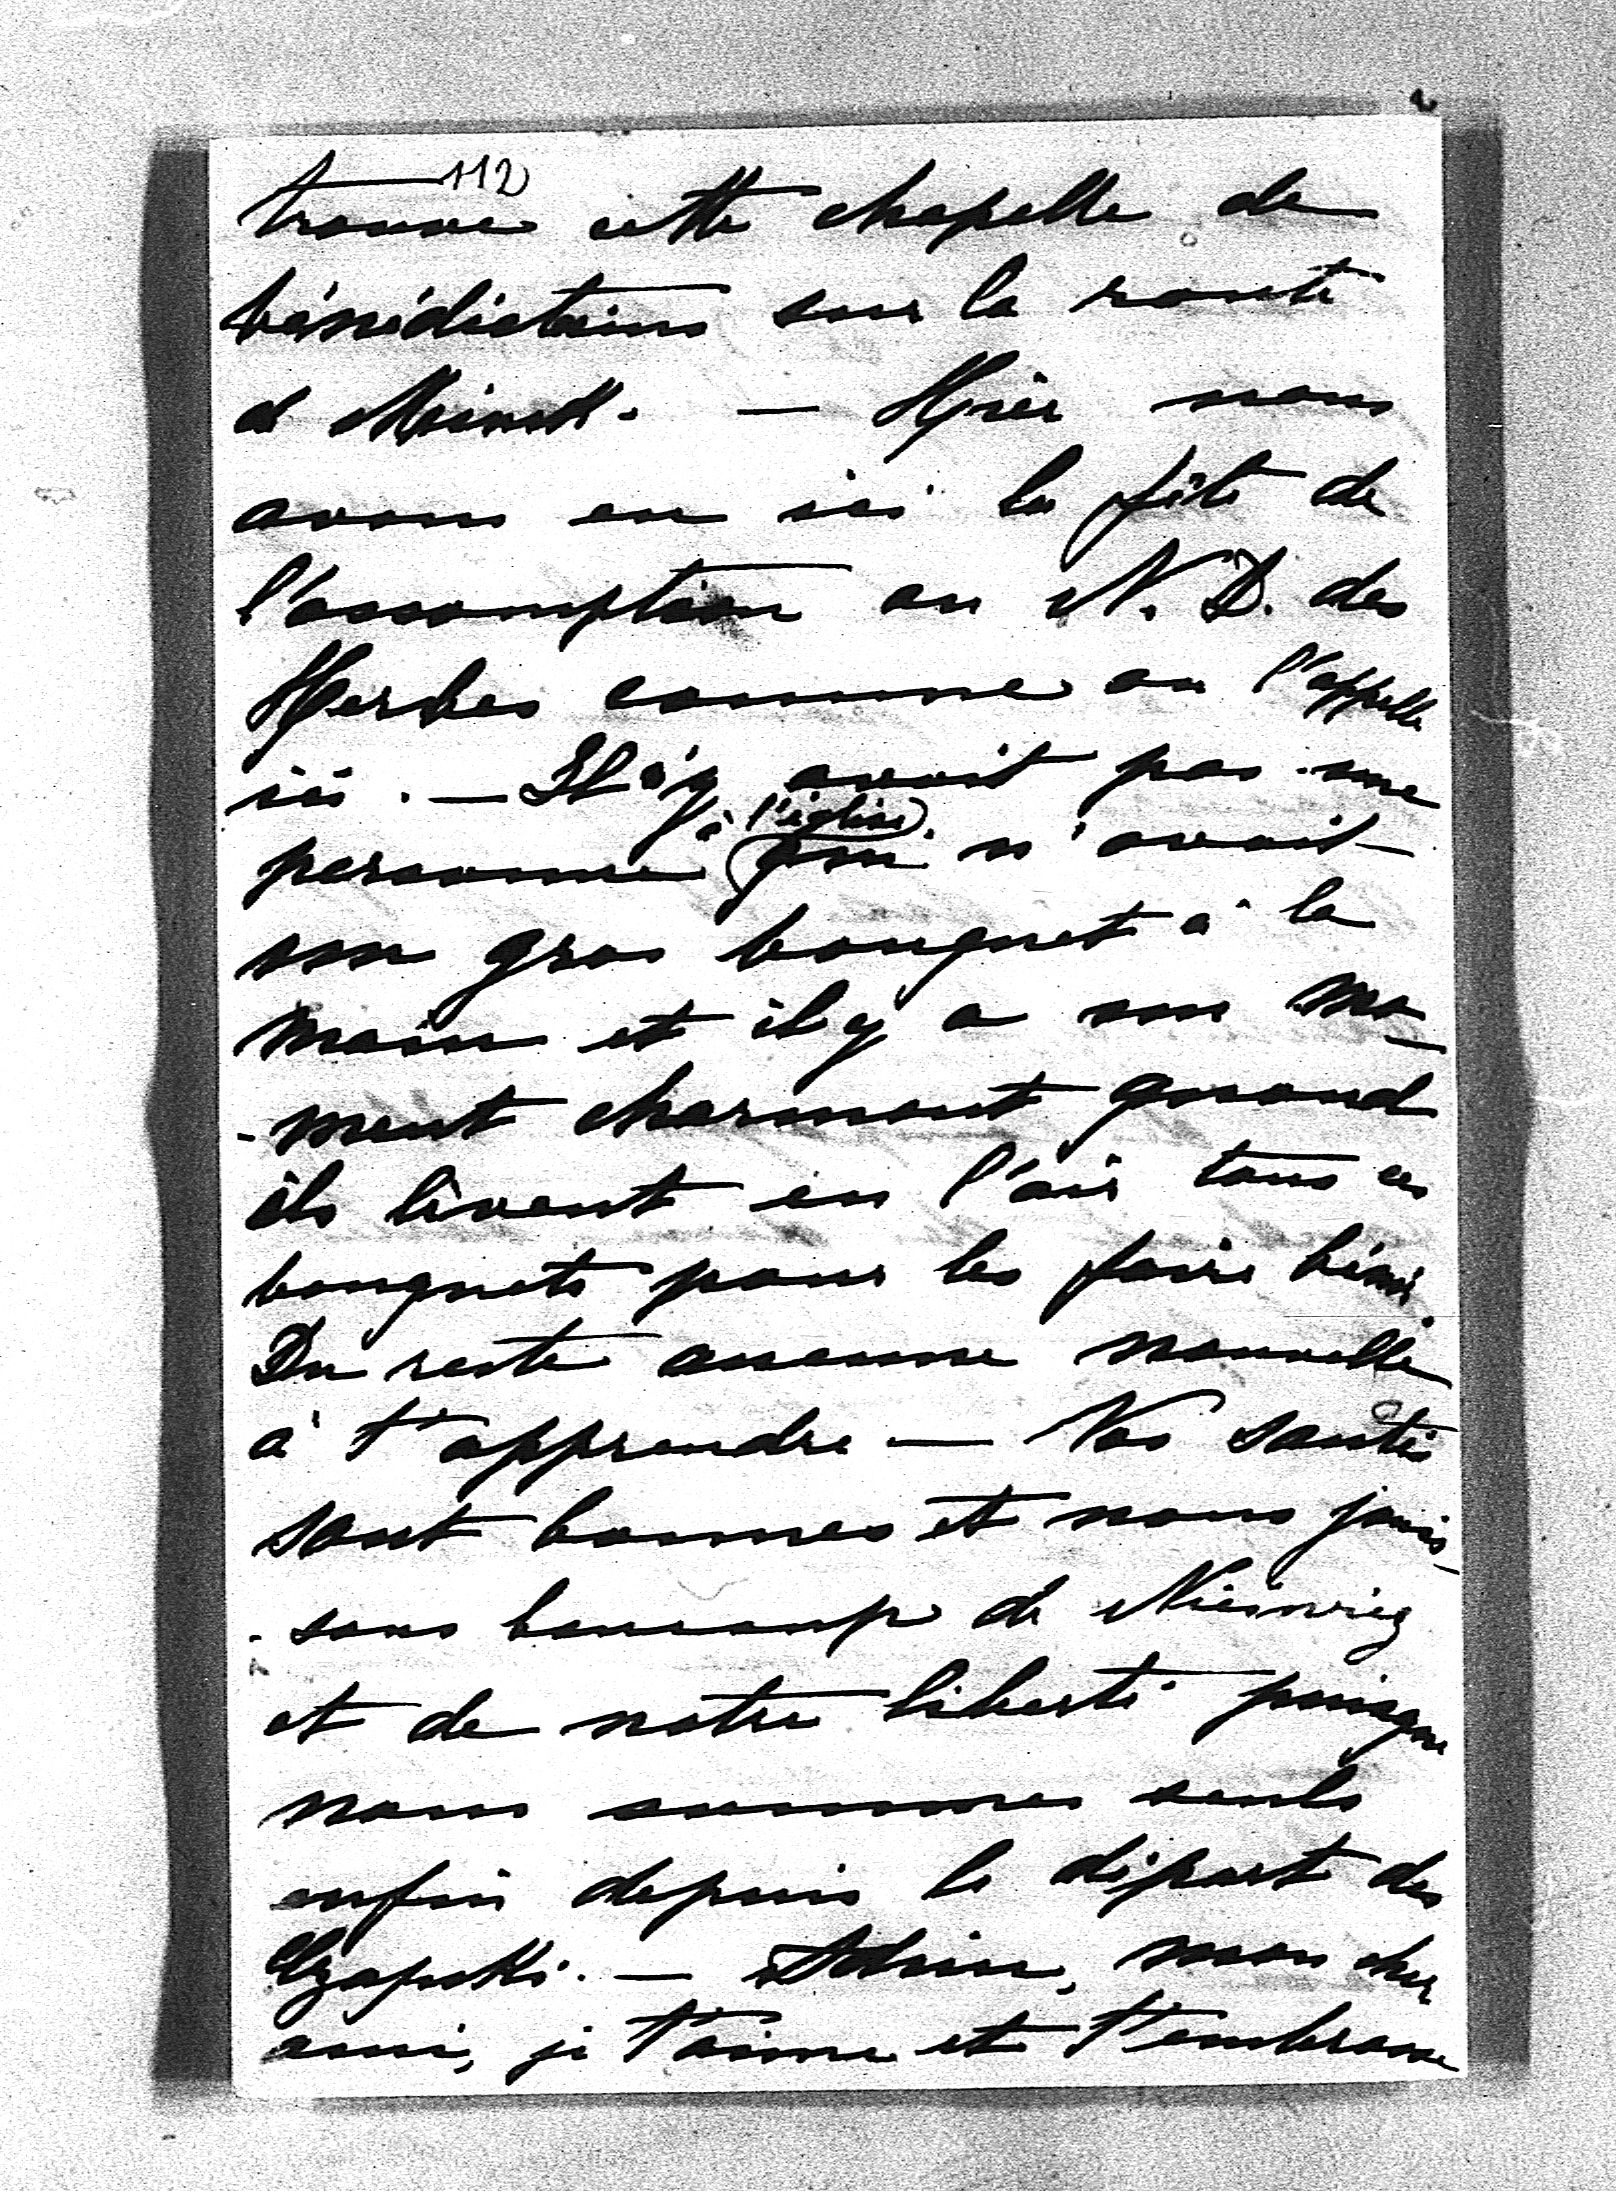 112
trouve cette chapelle de
bénédictins sur la route
d Minsk. — Hier nous
avons eu ici la fête de
l'assomption ou N. D. des
Herbes comme on l'appelle
ici. — Il n'y avait pas une
à l'église
personne qui n'avait
un gros bouquet à la
main et il y a un mo-
-ment charmant quand
ils lèvent en l'air tous ces
bouquets pour les faire bénir.
Du reste aucune nouvelle
à t'apprendre — Nos santés
sont bonnes et nous jouis-
-sons beaucoup de Nieswiez
et de notre liberté puisque
nous sommes seuls
enfin depuis le départ des
Czapski. — Adieu, mon cher
ami, je t'aime et t'embrasse